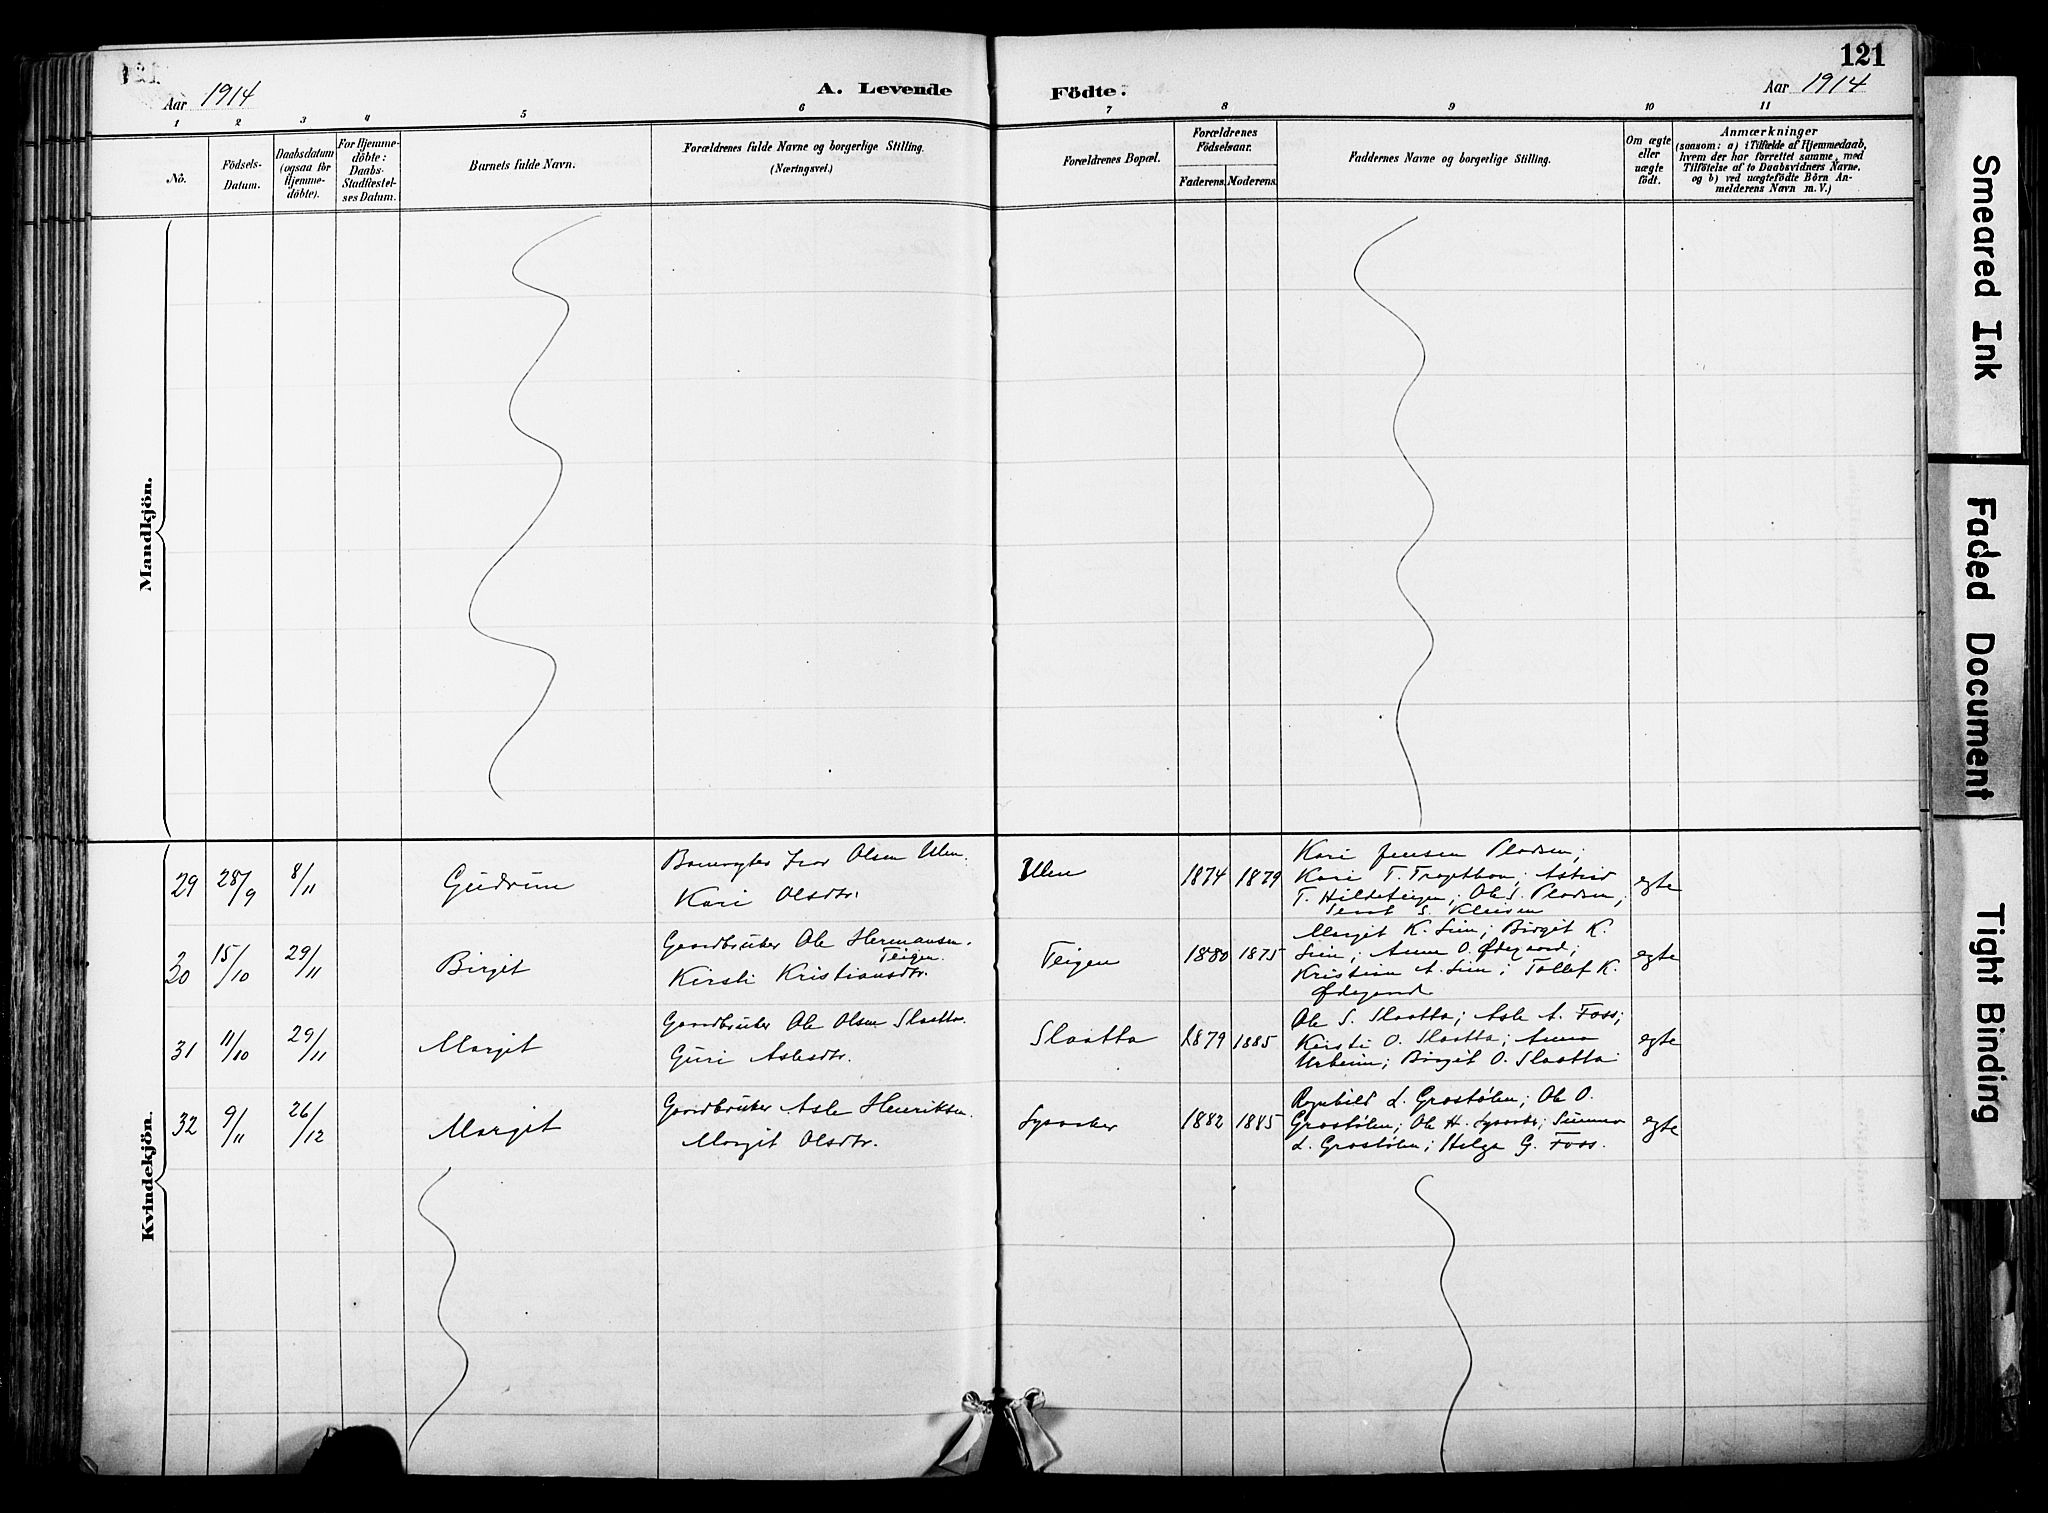 121
Aar 1914
A. Levende Födte:
Aar 1914
1 2 3 4 5 6 7 8 9 10 11
No.
Födsels-
Datum.
Daabsdatum
(ogsaa for
Hjemme-
döbte).
For Hjemme-
döbte:
Daabs-
Stadfæstel-
ses Datum.
Barnets fulde Navn.
Forældrenes fulde Navne og borgerlige Stilling.
(Næringsvei.)
Forældrenes Bopæl.
Forældrenes
Födselsaar.
Faderens. Moderens.
Faddernes Navne og borgerlige Stilling.
Om ægte
eller
uægte
födt.
Anmærkninger
(saasom: a) i Tilfælde af Hjemmedaab,
hvem der har forrettet samme, med
Tilföielse af to Daabsvidners Navne,
og b) ved uægtefödte Börn An-
melderens Navn m. V.)
Mandkjön.
Kvindekjön.
29 28/9 8/11 Gudrun
Banevogter Ivar Olsen Ulen.
Kari Olsdtr.
Ulen 1874 1879
Kari Jensen Pladsen;
Kari T. Astrid
T. Hildeteigen; Ole S. Pladsen;
S.
egte
30 15/10 29/11 Birgit
Gaardbruker Ole Hermansen
Teigen.
Kirsti Kristiansdtr.
Teigen 1880 1875
Margit K. Lien; Birgit K.
Lien; Anne O. Ødegaard;
Kristian A. Lien; Tollef K.
Ødegaard
egte
31 11/10 29/11 Margit
Gaardbruker Ole Olsen Slaatto.
Guri Aslesdtr.
Slaatto 1879 1885
Ole S. Slaatto; Asle A. Foss;
Kirsti O. Slaatto; Anna
Birgit O. Slaatto
egte
32 9/11 26/12 Margit
Gaardbruker Asle Henriksen.
Margit Olsdtr.
Lysaaker 1882 1885
Ragnhild L. Grostølen; Ole O.
Grostølen; Ole H. Lysaaker; Gunnar
L. Grostølen; Helge G. Foss.
egte
Smeared Ink
Faded Document
Tight Binding